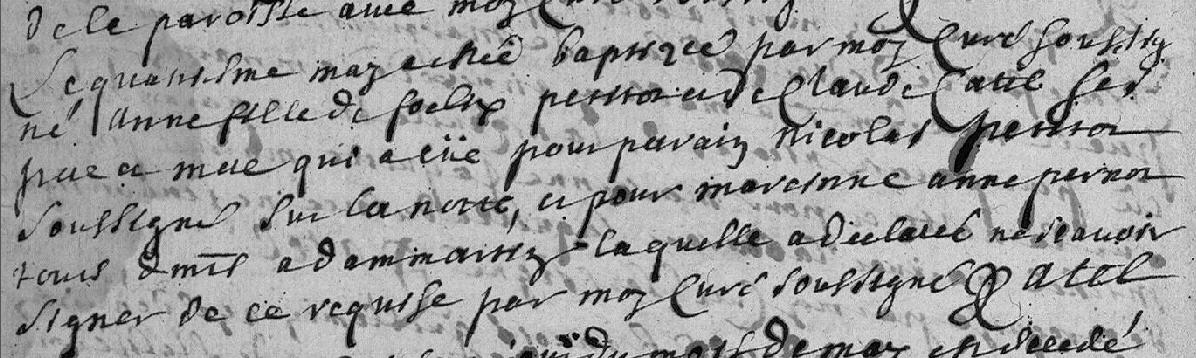 de la paroisse avec moy
Le quatrisme may a esté baptizee par moy Curé soubsig
né Anne fille de foelix pernot et de Claude Catel ses
pere a mere qui a eüe pour parain Nicolas pernot
soussigné sur la notte, et pour marainne anne pernot
tous d a dammartin laquelle a declaré ne scauoir
signer de ce requise par moy Curé soussigné Patel
du mois de may est decedé